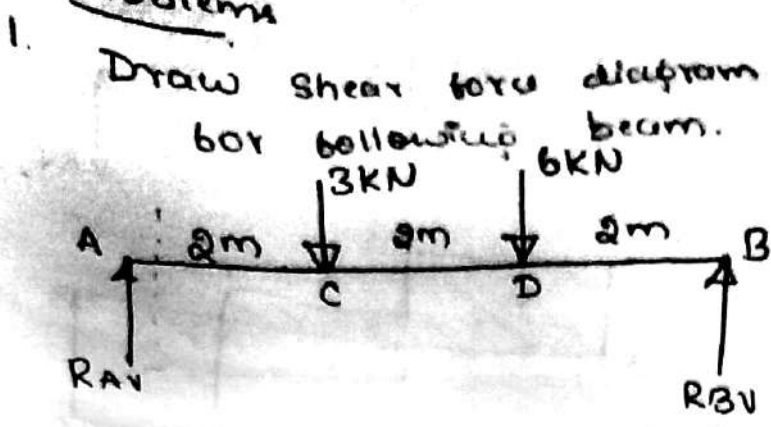 1.
Draw Shear force diagram
for following beam.
3KN 6KN
A 2m 2m 2m B
C D
RAV RBV